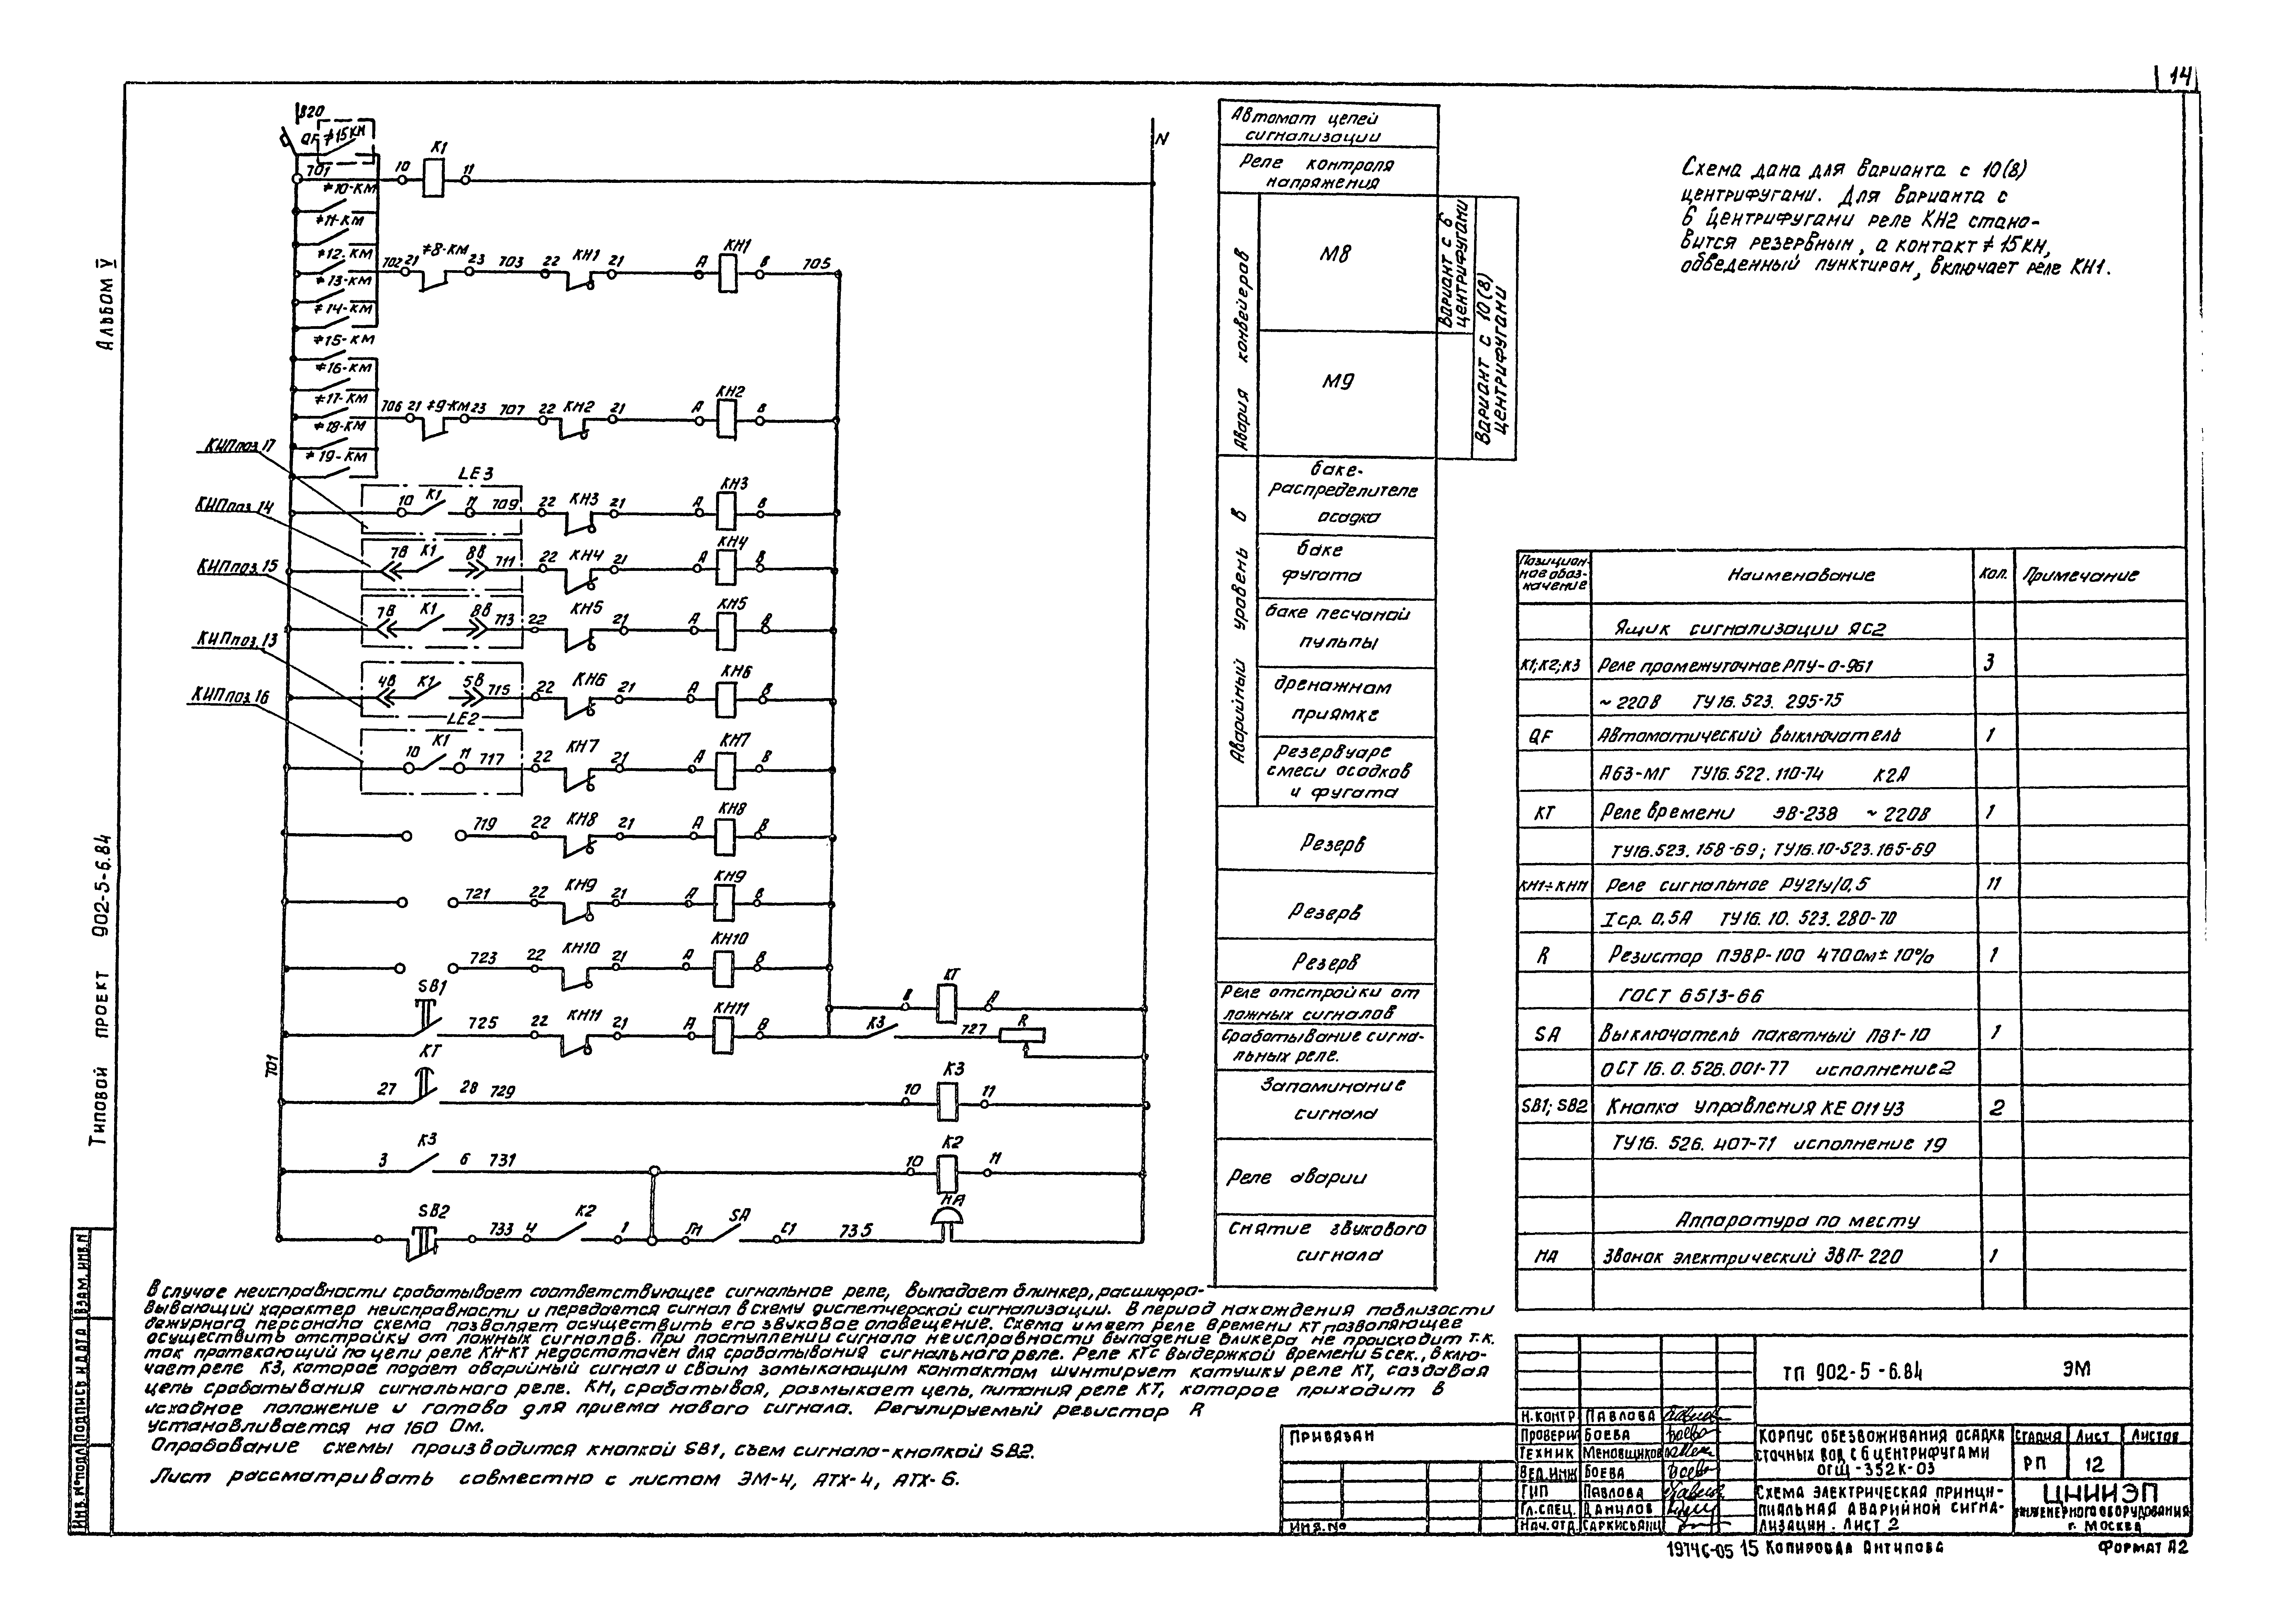 14
Альбом V
Типовой проект 902-5-6.84
ИНВ.№ПОДЛ
ПОДПИСЬ И ДАТА
ВЗАМ. ИНВ.N
820
QF
≠15КМ
701
10
К1
11
N
≠10-КМ
≠11-КМ
≠12-КМ
≠13-КМ
≠14-КМ
702 21 ≠8-КМ 23 703 22 КН1 21 А КН1 В 705
≠15-КМ
≠16-КМ
≠17-КМ
≠18-КМ
≠19-КМ
706 21 ≠9-КМ 23 707 22 КН2 21 А КН2 В
КИП поз.17
LE3
10 К1 11 709 22 КН3 21 А КН3 В
КИП поз.14
7В К1 8В 711 22 КН4 21 А КН4 В
КИП поз.15
7В К1 8В 713 22 КН5 21 А КН5 В
КИП поз.13
4В К1 5В 715 22 КН6 21 А КН6 В
КИП поз.16
LE2
10 К1 11 717 22 КН7 21 А КН7 В
719 22 КН8 21 А КН8 В
721 22 КН9 21 А КН9 В
723 22 КН10 21 А КН10 В
КТ А
SB1
725 22 КН11 21 А КН11 В К3 727 R
701
КТ
27 28 729 10 К3 11
К3
3 6 731 10 К2 11
SB2
733 4 К2 1 Л1 SA С1 735 НА
Автомат цепей
сигнализации
Реле контроля
напряжения
Авария конвейеров
М8
М9
Вариант с 6
центрифугами
Вариант с 10(8)
центрифугами
Аварийный уровень в
баке-
распределителе
осадка
баке
фугата
баке песчаной
пульпы
дренажном
приямке
резервуаре
смеси осадков
и фугата
Резерв
Резерв
Резерв
Реле отстройки от
ложных сигналов
Срабатывание сигна-
льных реле.
Запоминание
сигнала
Реле аварии
Снятие звукового
сигнала
Схема дана для варианта с 10(8)
центрифугами. Для варианта с
6 центрифугами реле КН2 стано-
вится резервным, а контакт ≠15КН,
обведенный пунктиром, включает реле КН1.
Позицион-
ное обоз-
начение
Наименование
Кол.
Примечание
Ящик сигнализации ЯС2
К1;К2;К3 Реле промежуточное РПУ-0-961 3
~220В ТУ16.523.295-75
QF Автоматический выключатель 1
А63-МГ ТУ16.522.110-74 К2А
КТ Реле времени ЭВ-238 ~220В 1
ТУ16.523.158-69; ТУ16.10-523.165-69
КН1÷КН11 Реле сигнальное РУ21У/0,5 11
Iср. 0,5А ТУ16.10.523.280-70
R Резистор ПЭВР-100 470Ом±10% 1
ГОСТ 6513-66
SA Выключатель пакетный ПВ1-10 1
ОСТ 16.0.526.001-77 исполнение2
SB1; SB2 Кнопка управления КЕ 011 У3 2
ТУ16.526.407-71 исполнение 19
Аппаратура по месту
НА Звонок электрический ЗВП-220 1
В случае неисправности срабатывает соответствующее сигнальное реле, выпадает блинкер, расшифро-
вывающий характер неисправности и передается сигнал в схему диспетчерской сигнализации. В период нахождения поблизости
дежурного персонала схема позволяет осуществить его звуковое оповещение. Схема имеет реле времени КТ позволяющее
осуществить отстройку от ложных сигналов. При поступлении сигнала неисправности выпадение бликера не происходит т.к.
ток протекающий по цепи реле КН-КТ недостаточен для срабатывания сигнального реле. Реле КТ с выдержкой времени 5 сек., вклю-
чает реле К3, которое подает аварийный сигнал и своим замыкающим контактом шунтирует катушку реле КТ, создавая
цепь срабатывания сигнального реле. КН, срабатывая, размыкает цепь, питания реле КТ, которое приходит в
исходное положение и готово для приема нового сигнала. Регулируемый резистор R
устанавливается на 160 Ом.
Опробование схемы производится кнопкой SB1, съем сигнала-кнопкой SB2.
Лист рассматривать совместно с листом ЭМ-4, АТХ-4, АТХ-6.
ПРИВЯЗАН
ИНВ.№
ТП 902-5-6.84 ЭМ
Н.КОНТР ПАВЛОВА
ПРОВЕРИЛ БОЕВА
ТЕХНИК МЕНОВЩИКОВА
ВЕД.ИНЖ БОЕВА
ГИП ПАВЛОВА
ГЛ.СПЕЦ. ДАНИЛОВ
НАЧ.ОТД. САРКИСЬЯНЦ
КОРПУС ОБЕЗВОЖИВАНИЯ ОСАДКА
СТОЧНЫХ ВОД С 6 ЦЕНТРИФУГАМИ
ОГШ-352К-03
СТАДИЯ ЛИСТ ЛИСТОВ
РП 12
СХЕМА ЭЛЕКТРИЧЕСКАЯ ПРИНЦИ-
ПИАЛЬНАЯ АВАРИЙНОЙ СИГНА-
ЛИЗАЦИИ. ЛИСТ 2
ЦНИИЭП
ИНЖЕНЕРНОГО ОБОРУДОВАНИЯ
г. МОСКВА
19746-05 15 КОПИРОВАЛ АНТИПОВА ФОРМАТ А2